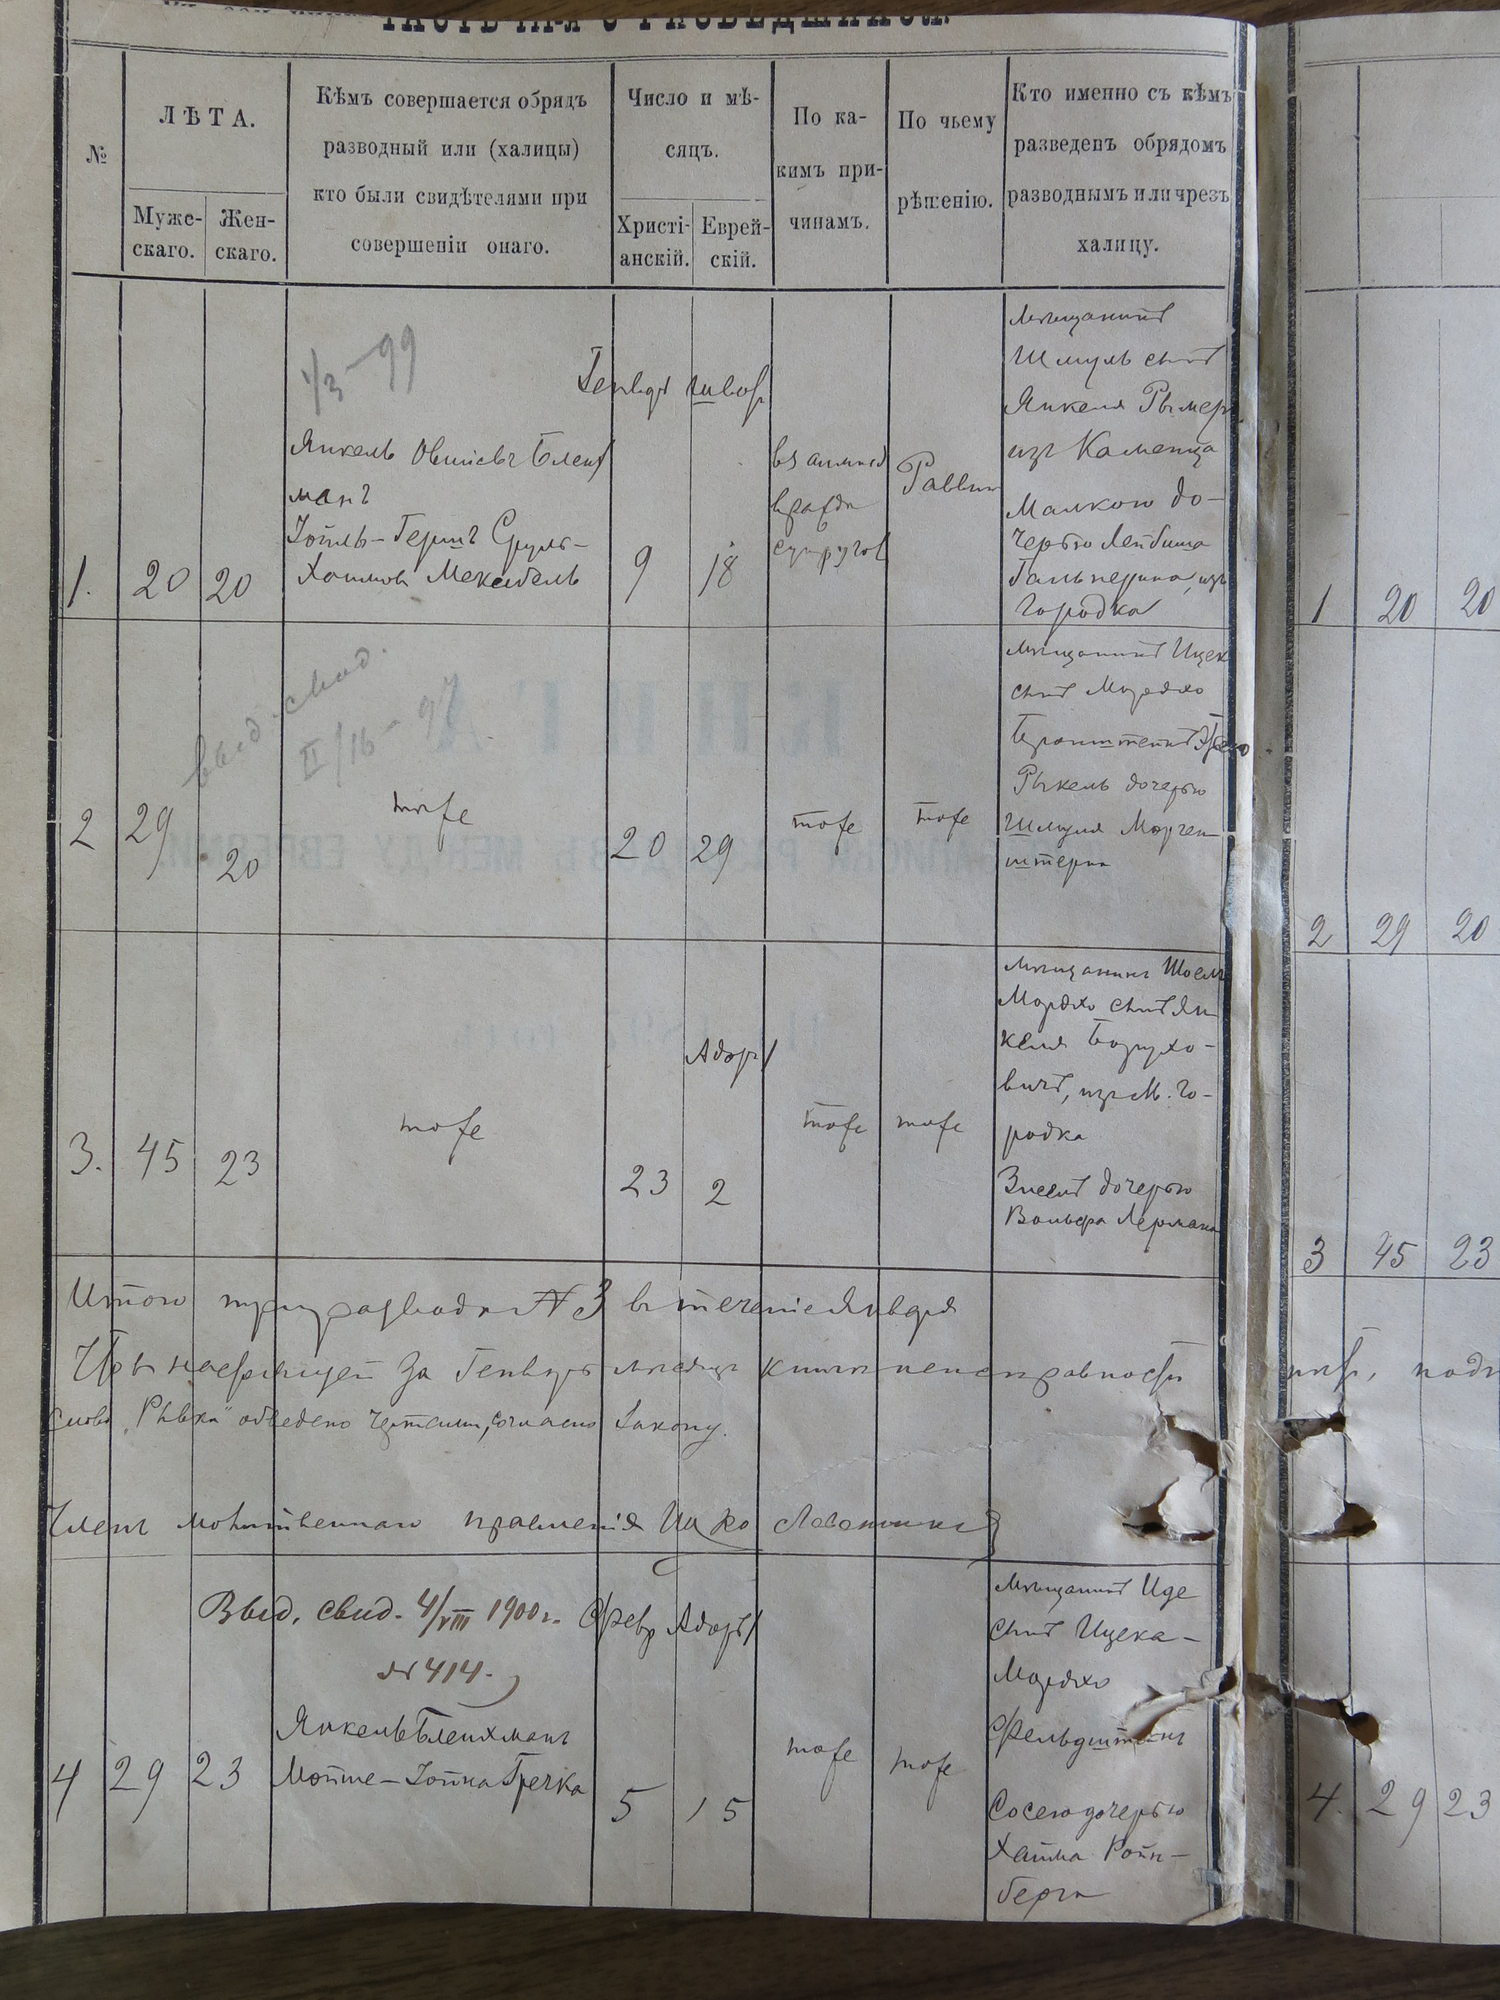 ЧАСТЬ III-я О РАЗВЕДШИХСЯ.
№
ЛѢТА.
Муже-
скаго.
Жен-
скаго.
Кѣмъ совершается обрядъ
разводный или (халицы)
кто были свидѣтелями при
совершеніи онаго.
Число и мѣ-
сяцъ.
Христі-
анскій.
Еврей-
скій.
По ка-
кимъ при-
чинамъ.
По чьему
рѣшенію.
Кто именно съ кѣмъ
разведенъ обрядомъ
разводнымъ или чрезъ
халицу.
1/3 - 99
1.
20
20
Янкель
манъ
Хаимовъ
Генвар
9
18
взаимной
вражды
супруговъ
Раввин
Мѣщанинъ
Шмуль сынъ
Янкеля Рымер
изъ Каменца
Малкою до-
черью Лейбиша
Гальперина, изъ
Городка
Выд. свид.
II/16 - 97
2
29
20
тоже
20
29
тоже
тоже
Мѣщанинъ Ицек
сынъ Мордко
Рыкель дочерью
Шмуля Морген-
штерна
3.
45
23
тоже
Адаръ
23
2
тоже
тоже
Мѣщанинъ
Мордко сынъ Ян
келя Борухо-
вичъ, изъ м. Го-
родка
дочерью
Вольфа Лермана
Итого три развода № 3 въ теченіе Января
за Генварь мѣсяцъ
слово „Рывка“ обведено чертами, согласно закону.
Членъ молитвеннаго правленія Ицко
Выд. свид. 4/VIII 1900 г.
№ 414.
4
29
23
Янкель Блейхманъ
Мойше-Іойна Гречка
Февр
Адаръ
5
15
тоже
тоже
Мѣщанинъ Иде
сынъ Ицека-
Мордко
Фельдштейнъ
Сосею дочерью
Хаима Ройн-
берга
1
20
20
2
29
20
3
45
23
4.
29
23